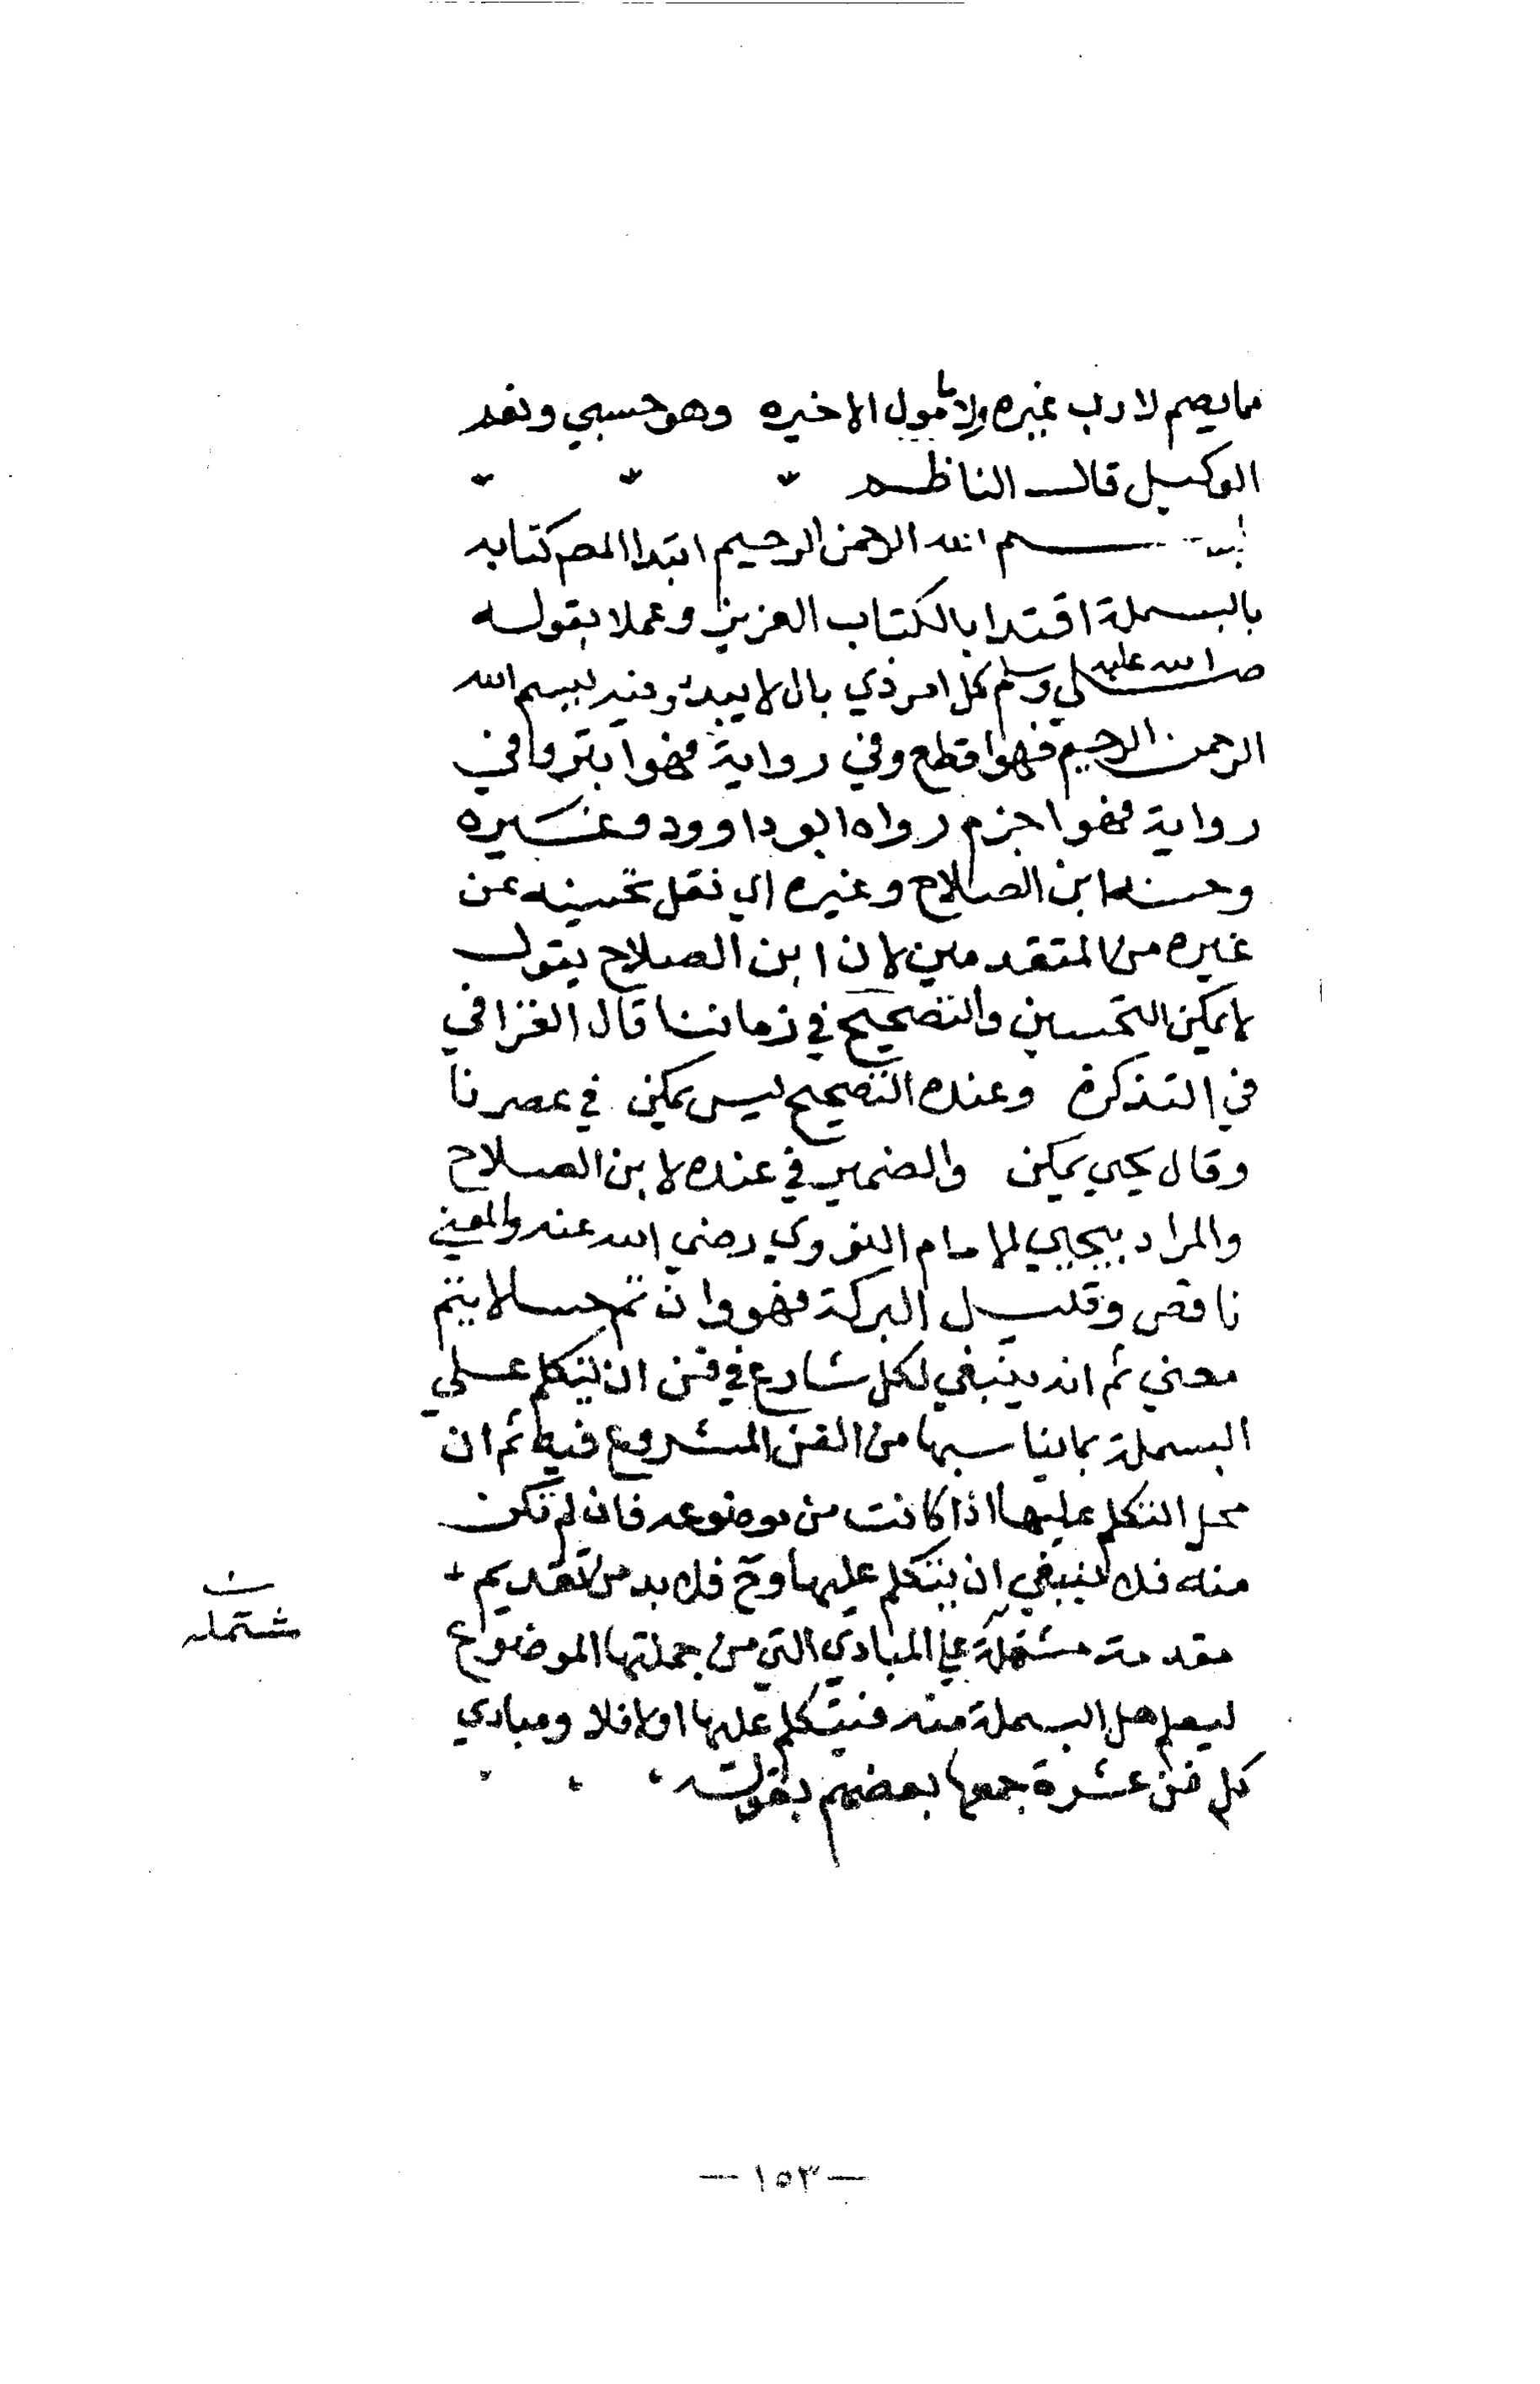 مما يصم لا رب غيره ولا مامول الا خيره وهو حسبي ونعم
الوكيل قال الناظم
بسم الله الرحمن الرحيم ابتدا المص كتابه
بالبسملة اقتدا بالكتاب العزيز وعملا بقوله
صلي الله عليه وسلم كل امر ذي بال لا يبدؤ فيه ببسم الله
الرحمن الرحيم فهو اقطع وفي رواية فهو ابتر وفي
رواية فهو اجزم رواه ابو داوود وغيره
وحسنه ابن الصلاح وغيره اي نقل تحسينه عن
غيره من المتقدمين لان ابن الصلاح يقول
لا يمكن التحسين والتصحيح في زماننا قال الغزافي
في التذكرة وعنده التصحيح ليس يمكن في عصرنا
وقال يحيي يمكن والضمير في عنده لابن الصلاح
والمراد بيحيي الامام النووي رضي الله عنه والمعني
ناقص وقليل البركة فهو وان تم حسا لا يتم
معني ثم انه ينبغي لكل شارع في فن ان يتكلم علي
البسملة بما يناسبها من الفن المشروع فيه ثم ان
محل التكلم عليها اذا كانت من موضوعه فان لم تكن
منه فلا ينبغي ان يتكلم عليها وح فلا بد من تقديم
مقدمة مشتملة علي المبادي التي من جملتها الموضوع
ليعلم هل البسملة منه فيتكلم عليها او لا فلا ومبادي
كل فن عشرة جمعها بعضهم بقوله
ن
مشتمله
— ١٥٣ —